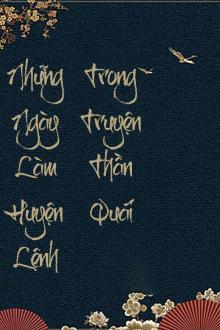 Những
Ngày
Làm
Huyện
Lệnh
Trong
Truyện
Thần
Quái